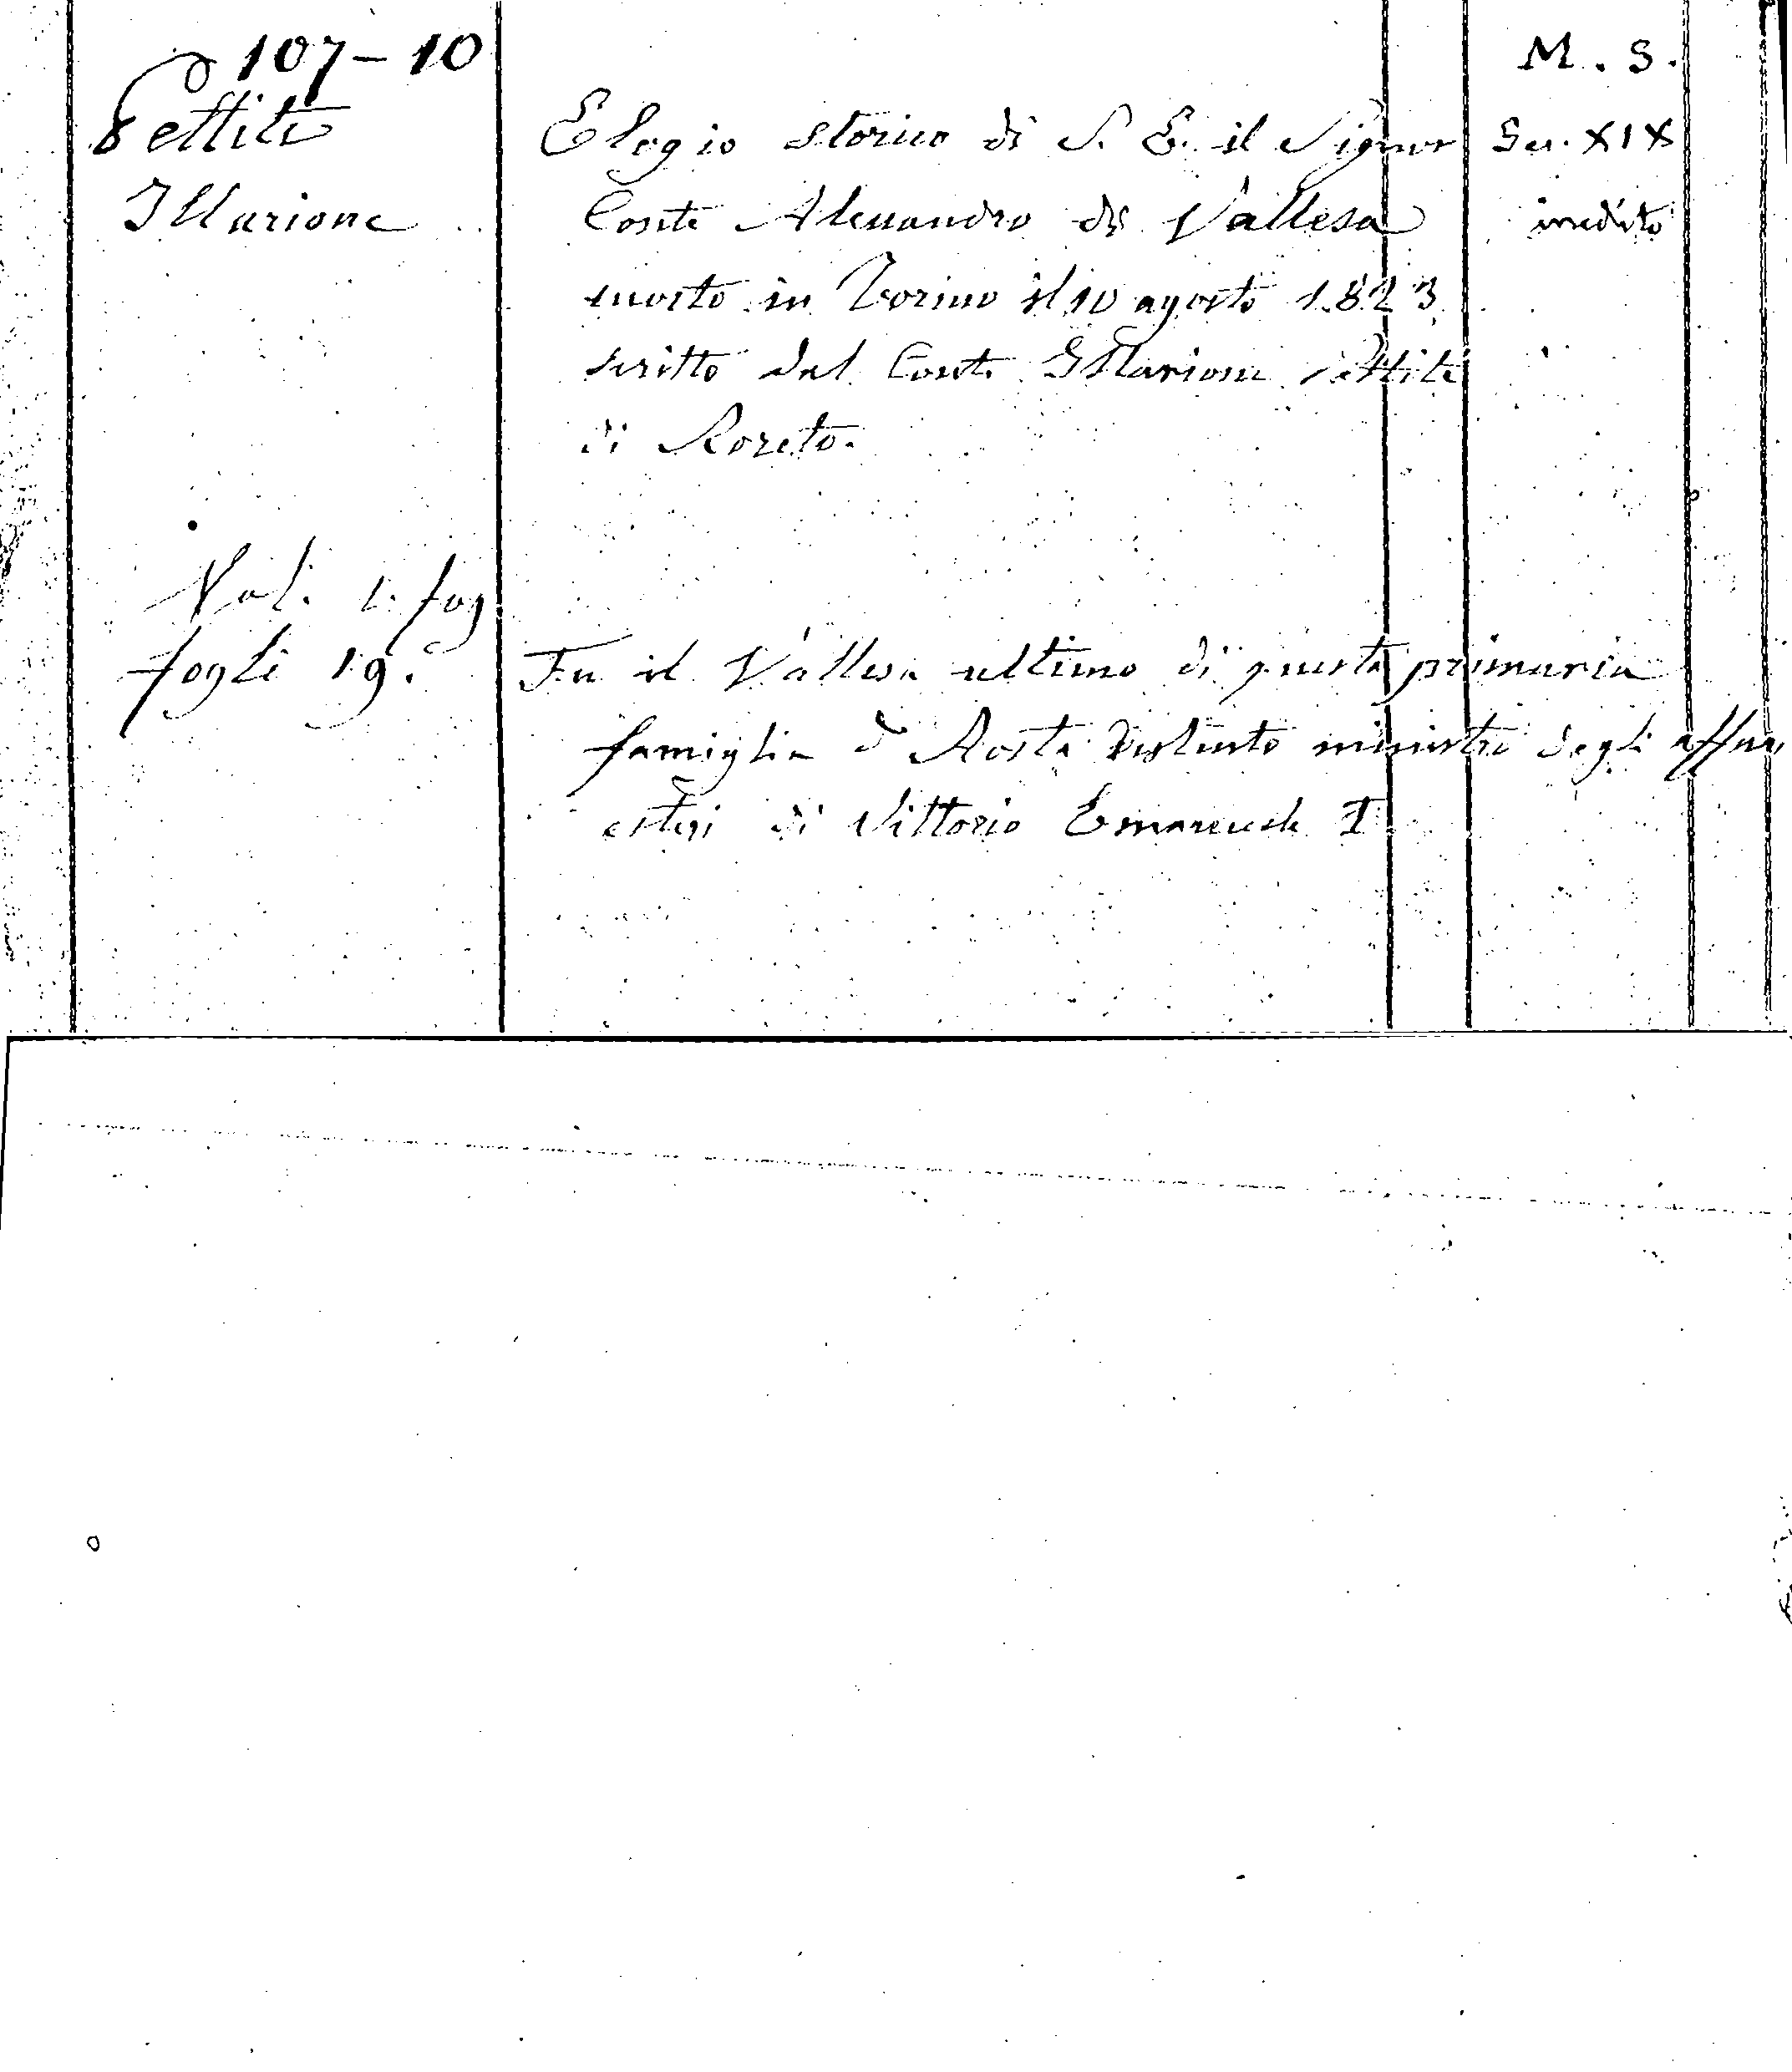 107-10
Pettiti
Illarione
Vol. 1. fog
fogli 19.
Elogio storico di S. E. il Signor
Conte Alessandro di Vallesa
morto in Torino il 10 agosto 1823
scritto dal Conte Illarione Pettiti
di Roreto.
Fu il Vallesa ultimo di questa primaria
famiglia d'Aosta distinto ministro degli affari
esteri di Vittorio Emanuele I
M. S.
Sec. XIX
inedito